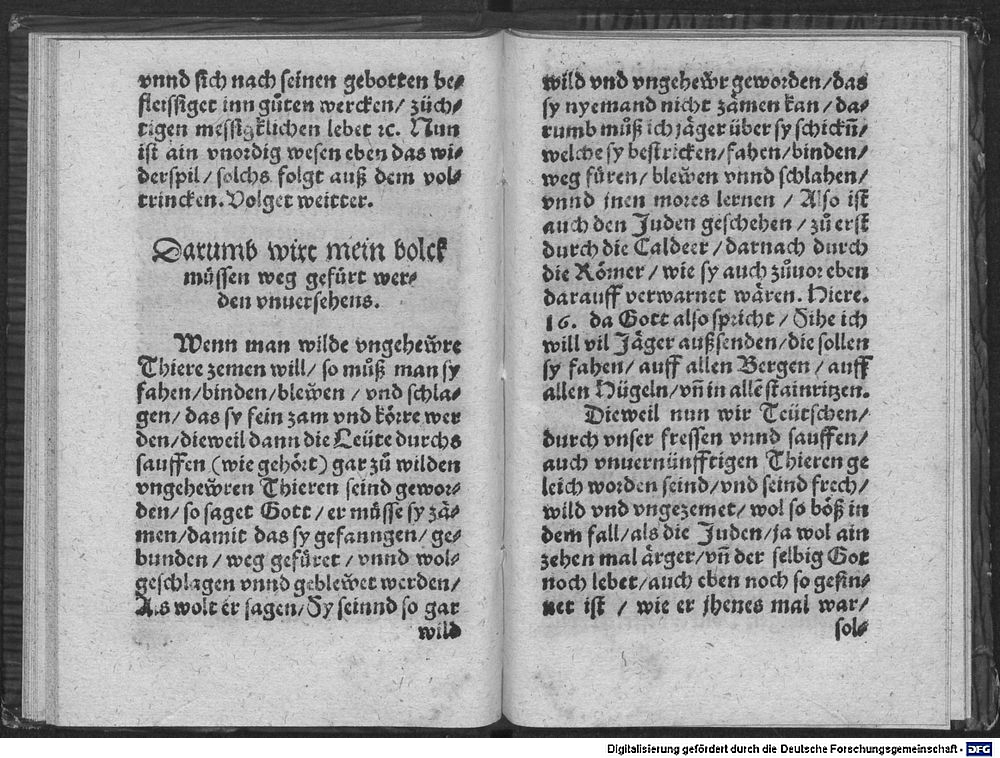 vnnd sich nach seinen gebotten be⸗
fleissiget inn gůten wercken/ züch⸗
tigen messigklichen lebet ꝛc. Nun
ist ain vnordig wesen eben das wi⸗
derspil/ solchs folgt auß dem vol⸗
trincken. Volget weitter.
Darumb wirt mein volck
müssen weg gefürt wer⸗
den vnuersehens.
Wenn man wilde vngehewre
Thiere zemen will/ so můß man sy
fahen/binden/blewen/ vnd schla⸗
gen/ das sy fein zam vnd körre wer
den/dieweil dann die Leüte durchs
sauffen (wie gehört) gar zů wilden
vngehewren Thieren seind gewor⸗
den/ so saget Gott/ er müsse sy zä⸗
men/damit das sy gefanngen/ ge⸗
bunden/ weg gefüret/ vnnd wol⸗
geschlagen vnnd geblewet werden/
Als wolt er sagen/ Sy seinnd so gar
wild
wild vnd vngehewr geworden/das
sy nyemand nicht zämen kan/ da⸗
rumb můß ich jäger über sy schickñ/
welche sy bestricken/fahen/binden/
weg füren/ blewen vnnd schlahen/
vnnd jnen mores lernen / Also ist
auch den Juden geschehen/ zů erst
durch die Caldeer/ darnach durch
die Römer/ wie sy auch zůuor eben
darauff verwarnet wären. Hiere.
16. da Gott also spricht/ Sihe ich
will vil Jäger außsenden/die sollen
sy fahen/ auff allen Bergen/ auff
allen Hügeln/vñ in allē stainritzen.
Dieweil nun wir Teütschen/
durch vnser fressen vnnd sauffen/
auch vnuernünfftigen Thieren ge
leich worden seind/vnd seind frech/
wild vnd vngezemet/ wol so böß in
dem fall/als die Juden/ja wol ain
zehen mal ärger/vñ der selbig Got
noch lebet/auch eben noch so gesin⸗
net ist / wie er jhenes mal war/
sol⸗
Digitalisierung gefördert durch die Deutsche Forschungsgemeinschaft - DFG